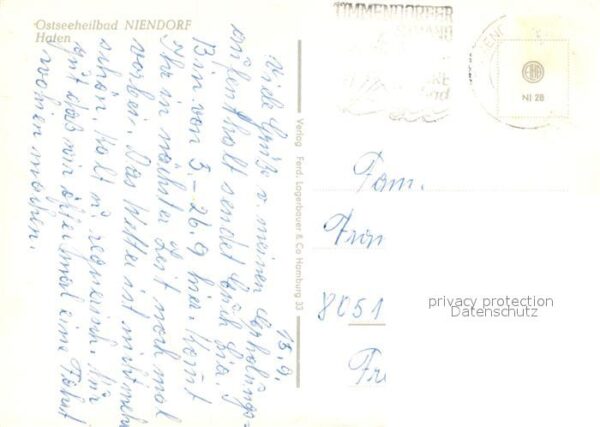 Ostseeheilbad NIENDORF
Hafen
TIMMENDORFER
STRAND
NI 28
Verlag Ferd. Lagerbauer & Co Hamburg 33
15.9.
Viele Grüße v. meinem Erholungs-
aufenthalt sendet Euch
Bin von 5.-26.9 hier. Kommt
Ihr in nächster Zeit noch mal
vorbei. Das Wetter ist nicht mehr
schön, kalt u. regnerisch. Nur
gut daß wir öfter mal eine Fahrt
machen.
Fam.
8051
privacy protection
Datenschutz